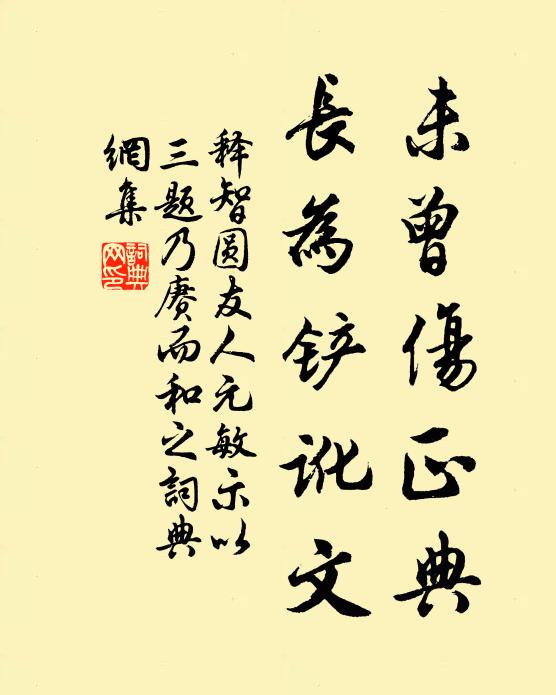 未曾傷正典
長為铲訛文
释智圆友人元敏示以
三题乃赓而和之詞典
網集
詞典網印